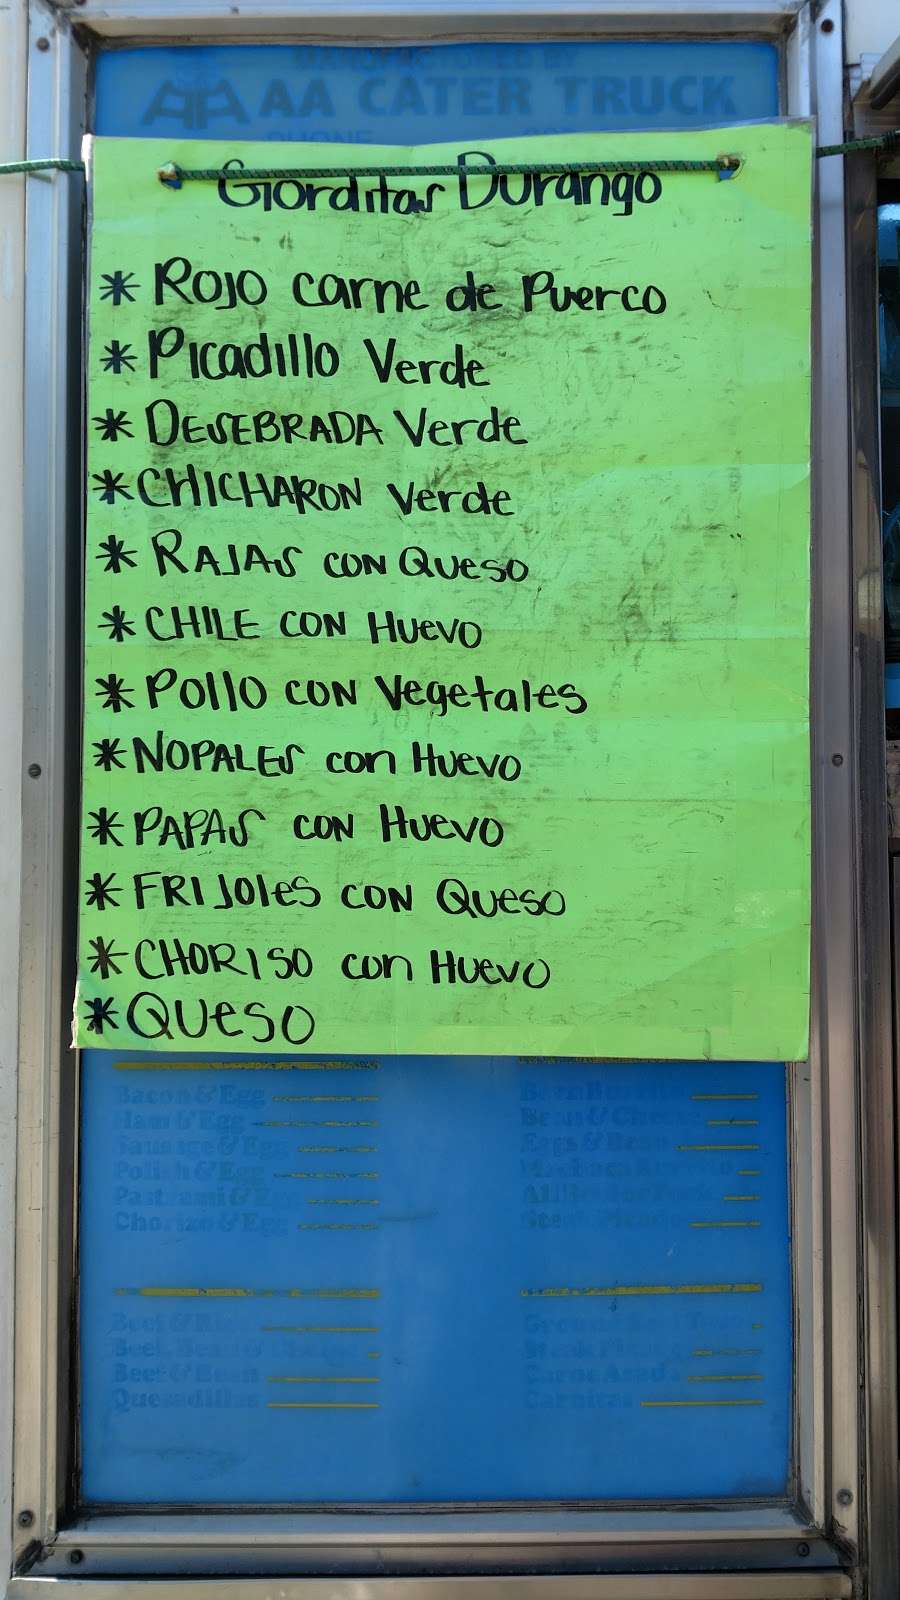 MANUFACTURED BY
AA AA CATER TRUCK
PHONE
Glorditas Durango
* ROJO carne de Puerco
* Picadillo Verde
* DESEBRADA Verde
* CHICHARON Verde
* RAJAS CON Queso
* CHILE CON Huevo
* Pollo CON Vegetales
* NOPALES con Huevo
* PAPAS CON Huevo
* FRIJOLES CON Queso
* CHORISO con Huevo
* Queso
Bacon & Egg
Ham & Egg
Sausage & Egg
Polish & Egg
Pastrami & Egg
Chorizo & Egg
Bean & Cheese
Beef & Bean
Quesadillas
Carne Asada
Carnitas